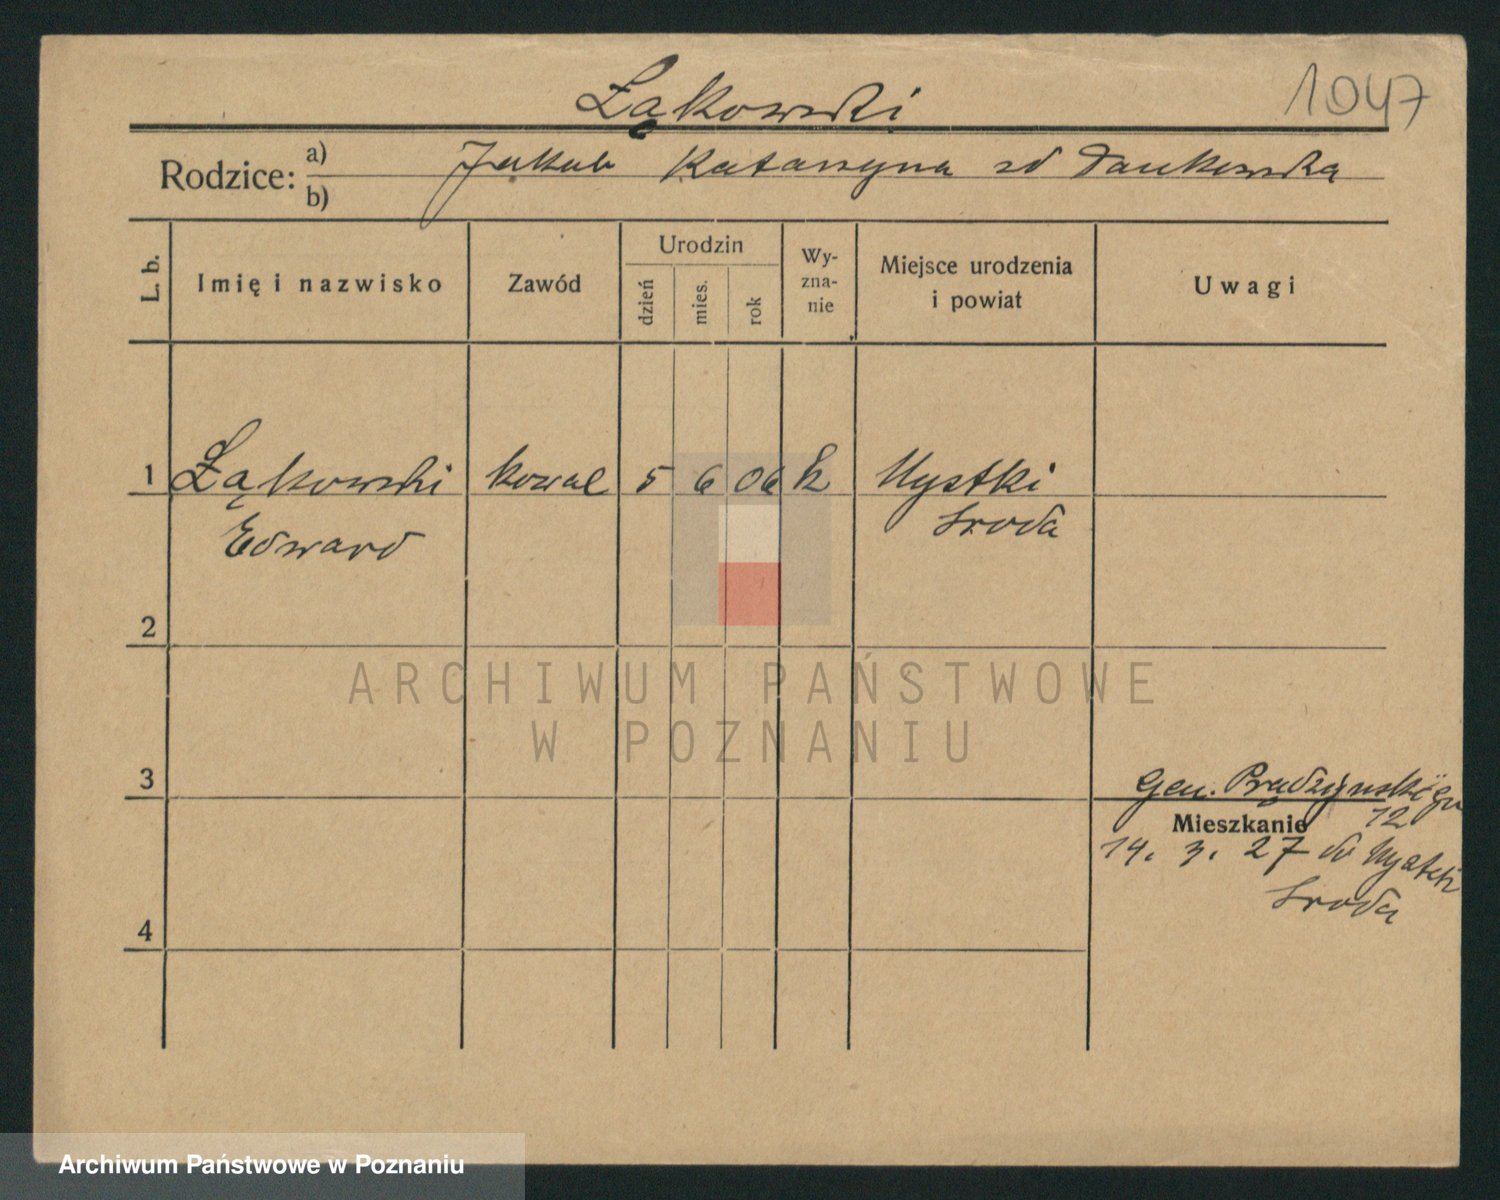 Łąkowski
1047
Rodzice: a) b)
Jakub Katarzyna zd Jankowska
L. b.
Imię i nazwisko
Zawód
Urodzin
dzień
mies.
rok
Wy-
zna-
nie
Miejsce urodzenia
i powiat
Uwagi
1 Łąkowski kowal 5 6 06 k Mystki
Edward Sroda
2
ARCHIWUM PAŃSTWOWE
W POZNANIU
3
Gen. Prądzyńskiego
12
Mieszkanie
14. 3. 27 do Mystki
Sroda
4
Archiwum Państwowe w Poznaniu